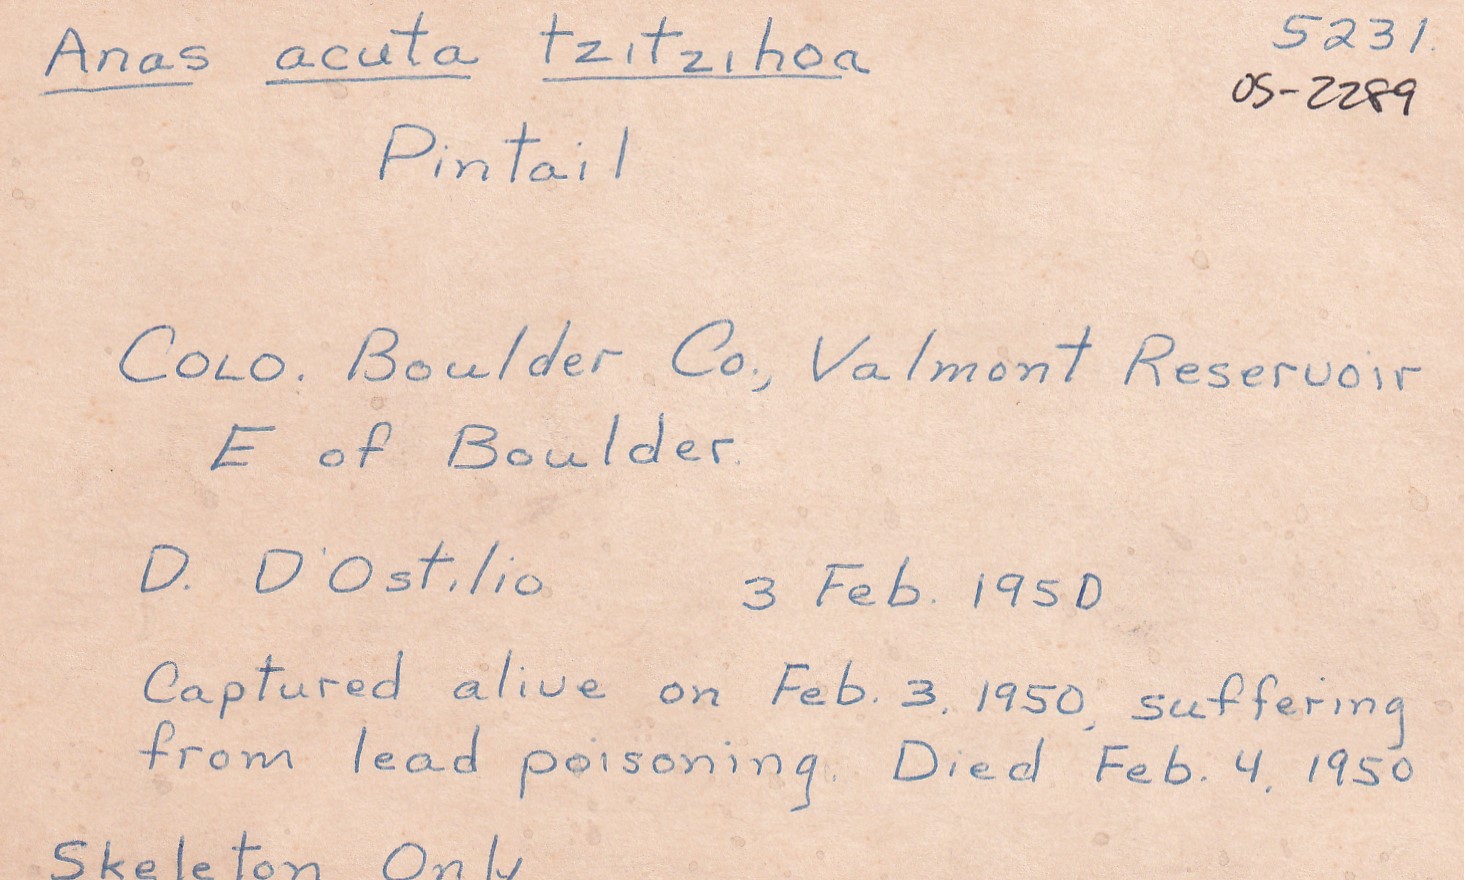 Anas acuta tzitzihoa 5231.
OS-2289
Pintail
COLO. Boulder Co., Valmont Reservoir
E of Boulder.
D. D'Ostilio 3 Feb. 1950
Captured alive on Feb. 3, 1950, suffering
from lead poisoning. Died Feb. 4, 1950
Skeleton Only